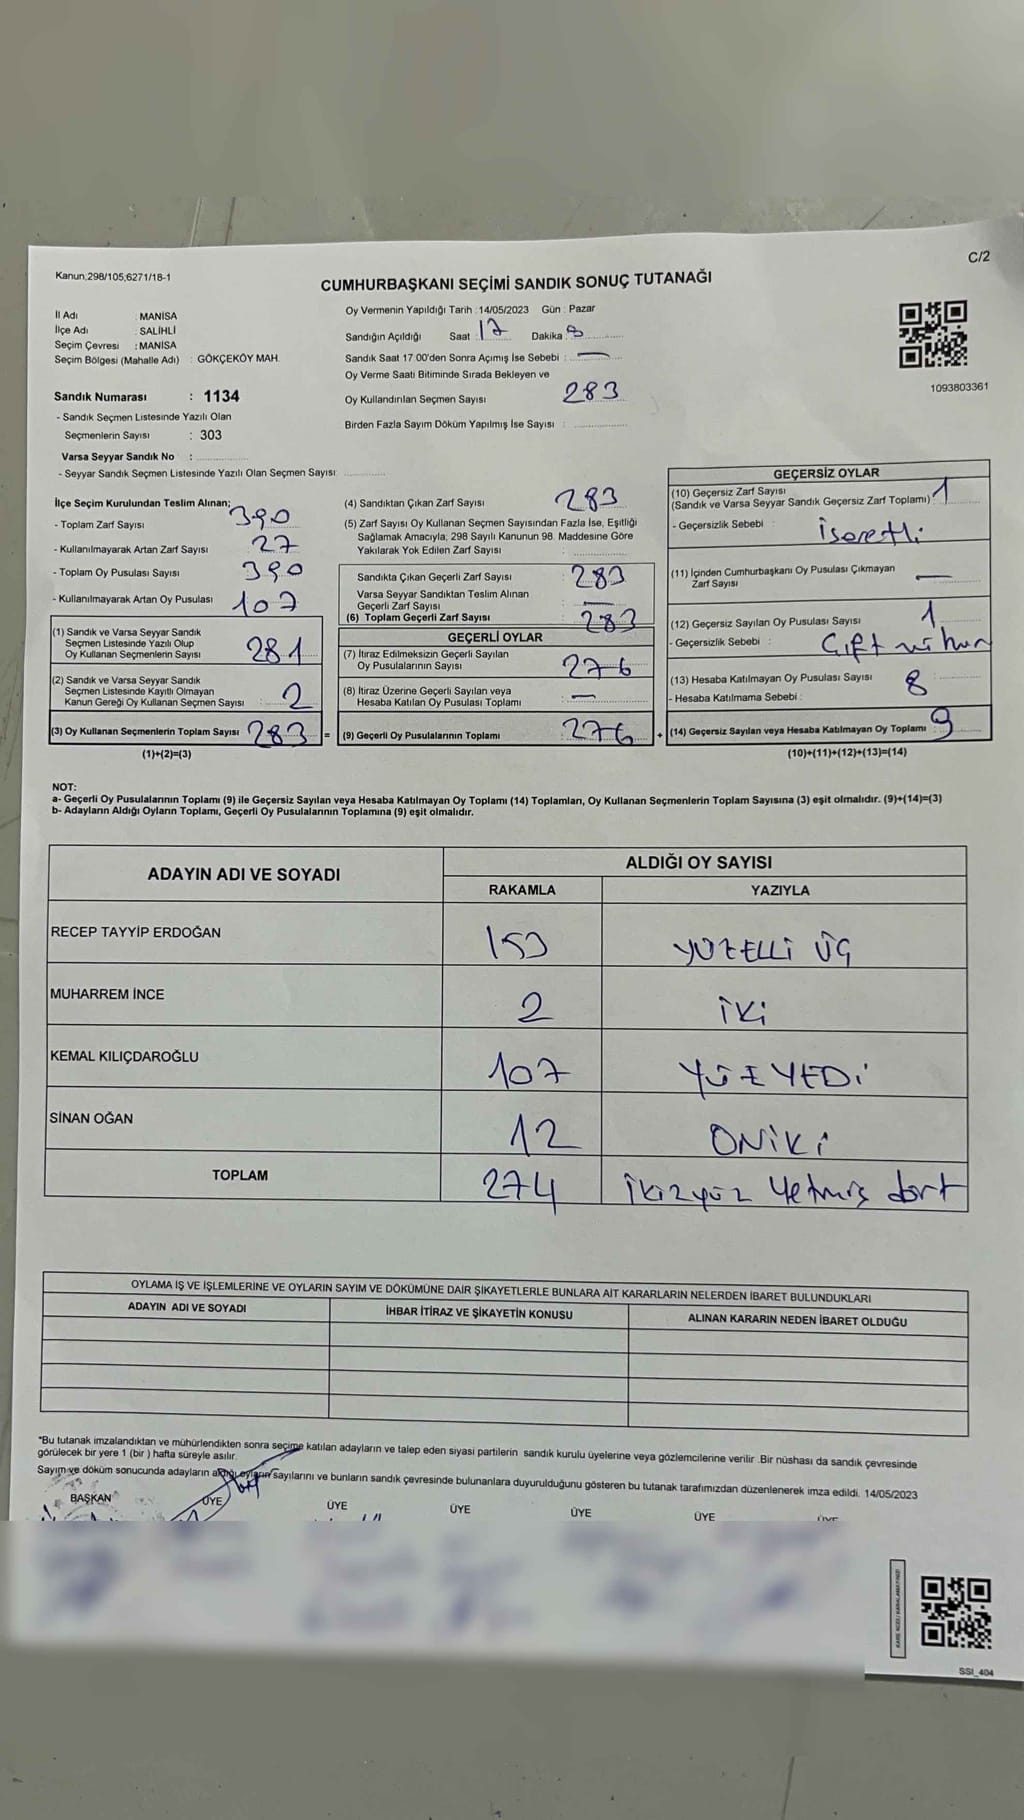 C/2
Kanun,298/105,6271/18-1
CUMHURBAŞKANI SEÇİMİ SANDIK SONUÇ TUTANAĞI
İl Adı : MANİSA
İlçe Adı : SALİHLİ
Seçim Çevresi : MANİSA
Seçim Bölgesi (Mahalle Adı) : GÖKÇEKÖY MAH.
Sandık Numarası : 1134
- Sandık Seçmen Listesinde Yazılı Olan
Seçmenlerin Sayısı : 303
Varsa Seyyar Sandık No :
- Seyyar Sandık Seçmen Listesinde Yazılı Olan Seçmen Sayısı
Oy Vermenin Yapıldığı Tarih : 14/05/2023 Gün : Pazar
Sandığın Açıldığı Saat 17 Dakika
Sandık Saat 17.00'den Sonra Açımış İse Sebebi : —
Oy Verme Saati Bitiminde Sırada Bekleyen ve
Oy Kullandırılan Seçmen Sayısı 283
Birden Fazla Sayım Döküm Yapılmış İse Sayısı :
1093803361
İlçe Seçim Kurulundan Teslim Alınan;
- Toplam Zarf Sayısı 390
- Kullanılmayarak Artan Zarf Sayısı 27
- Toplam Oy Pusulası Sayısı 390
- Kullanılmayarak Artan Oy Pusulası 107
(1) Sandık ve Varsa Seyyar Sandık
Seçmen Listesinde Yazılı Olup
Oy Kullanan Seçmenlerin Sayısı 281
(2) Sandık ve Varsa Seyyar Sandık
Seçmen Listesinde Kayıtlı Olmayan
Kanun Gereği Oy Kullanan Seçmen Sayısı 2
(3) Oy Kullanan Seçmenlerin Toplam Sayısı 283 =
(1)+(2)=(3)
(4) Sandıktan Çıkan Zarf Sayısı 283
(5) Zarf Sayısı Oy Kullanan Seçmen Sayısından Fazla İse, Eşitliği
Sağlamak Amacıyla; 298 Sayılı Kanunun 98. Maddesine Göre
Yakılarak Yok Edilen Zarf Sayısı
Sandıkta Çıkan Geçerli Zarf Sayısı 283
Varsa Seyyar Sandıktan Teslim Alınan
Geçerli Zarf Sayısı —
(6) Toplam Geçerli Zarf Sayısı 283
GEÇERLİ OYLAR
(7) İtiraz Edilmeksizin Geçerli Sayılan
Oy Pusulalarının Sayısı 276
(8) İtiraz Üzerine Geçerli Sayılan veya
Hesaba Katılan Oy Pusulası Toplamı —
(9) Geçerli Oy Pusulalarının Toplamı 276 +
GEÇERSİZ OYLAR
(10) Geçersiz Zarf Sayısı
(Sandık ve Varsa Seyyar Sandık Geçersiz Zarf Toplamı) 1
- Geçersizlik Sebebi : İşaretli
(11) İçinden Cumhurbaşkanı Oy Pusulası Çıkmayan
Zarf Sayısı —
(12) Geçersiz Sayılan Oy Pusulası Sayısı 1
- Geçersizlik Sebebi : Çift mühür
(13) Hesaba Katılmayan Oy Pusulası Sayısı 8
- Hesaba Katılmama Sebebi :
(14) Geçersiz Sayılan veya Hesaba Katılmayan Oy Toplamı 9
(10)+(11)+(12)+(13)=(14)
NOT:
a- Geçerli Oy Pusulalarının Toplamı (9) ile Geçersiz Sayılan veya Hesaba Katılmayan Oy Toplamı (14) Toplamları, Oy Kullanan Seçmenlerin Toplam Sayısına (3) eşit olmalıdır. (9)+(14)=(3)
b- Adayların Aldığı Oyların Toplamı, Geçerli Oy Pusulalarının Toplamına (9) eşit olmalıdır.
ADAYIN ADI VE SOYADI ALDIĞI OY SAYISI
RAKAMLA YAZIYLA
RECEP TAYYİP ERDOĞAN 153 YÜZELLİ ÜÇ
MUHARREM İNCE 2 İKİ
KEMAL KILIÇDAROĞLU 107 YÜZYEDİ
SİNAN OĞAN 12 ONİKİ
TOPLAM 274 İkizyüz Yetmiş dört
OYLAMA İŞ VE İŞLEMLERİNE VE OYLARIN SAYIM VE DÖKÜMÜNE DAİR ŞİKAYETLERLE BUNLARA AİT KARARLARIN NELERDEN İBARET BULUNDUKLARI
ADAYIN ADI VE SOYADI İHBAR İTİRAZ VE ŞİKAYETİN KONUSU ALINAN KARARIN NEDEN İBARET OLDUĞU
*Bu tutanak imzalandıktan ve mühürlendikten sonra seçime katılan adayların ve talep eden siyasi partilerin sandık kurulu üyelerine veya gözlemcilerine verilir .Bir nüshası da sandık çevresinde
görülecek bir yere 1 (bir ) hafta süreyle asılır.
Sayım ve döküm sonucunda adayların aldığı oyların sayılarını ve bunların sandık çevresinde bulunanlara duyurulduğunu gösteren bu tutanak tarafımızdan düzenlenerek imza edildi. 14/05/2023
BAŞKAN ÜYE ÜYE ÜYE ÜYE ÜYE ÜYE
SSI_404